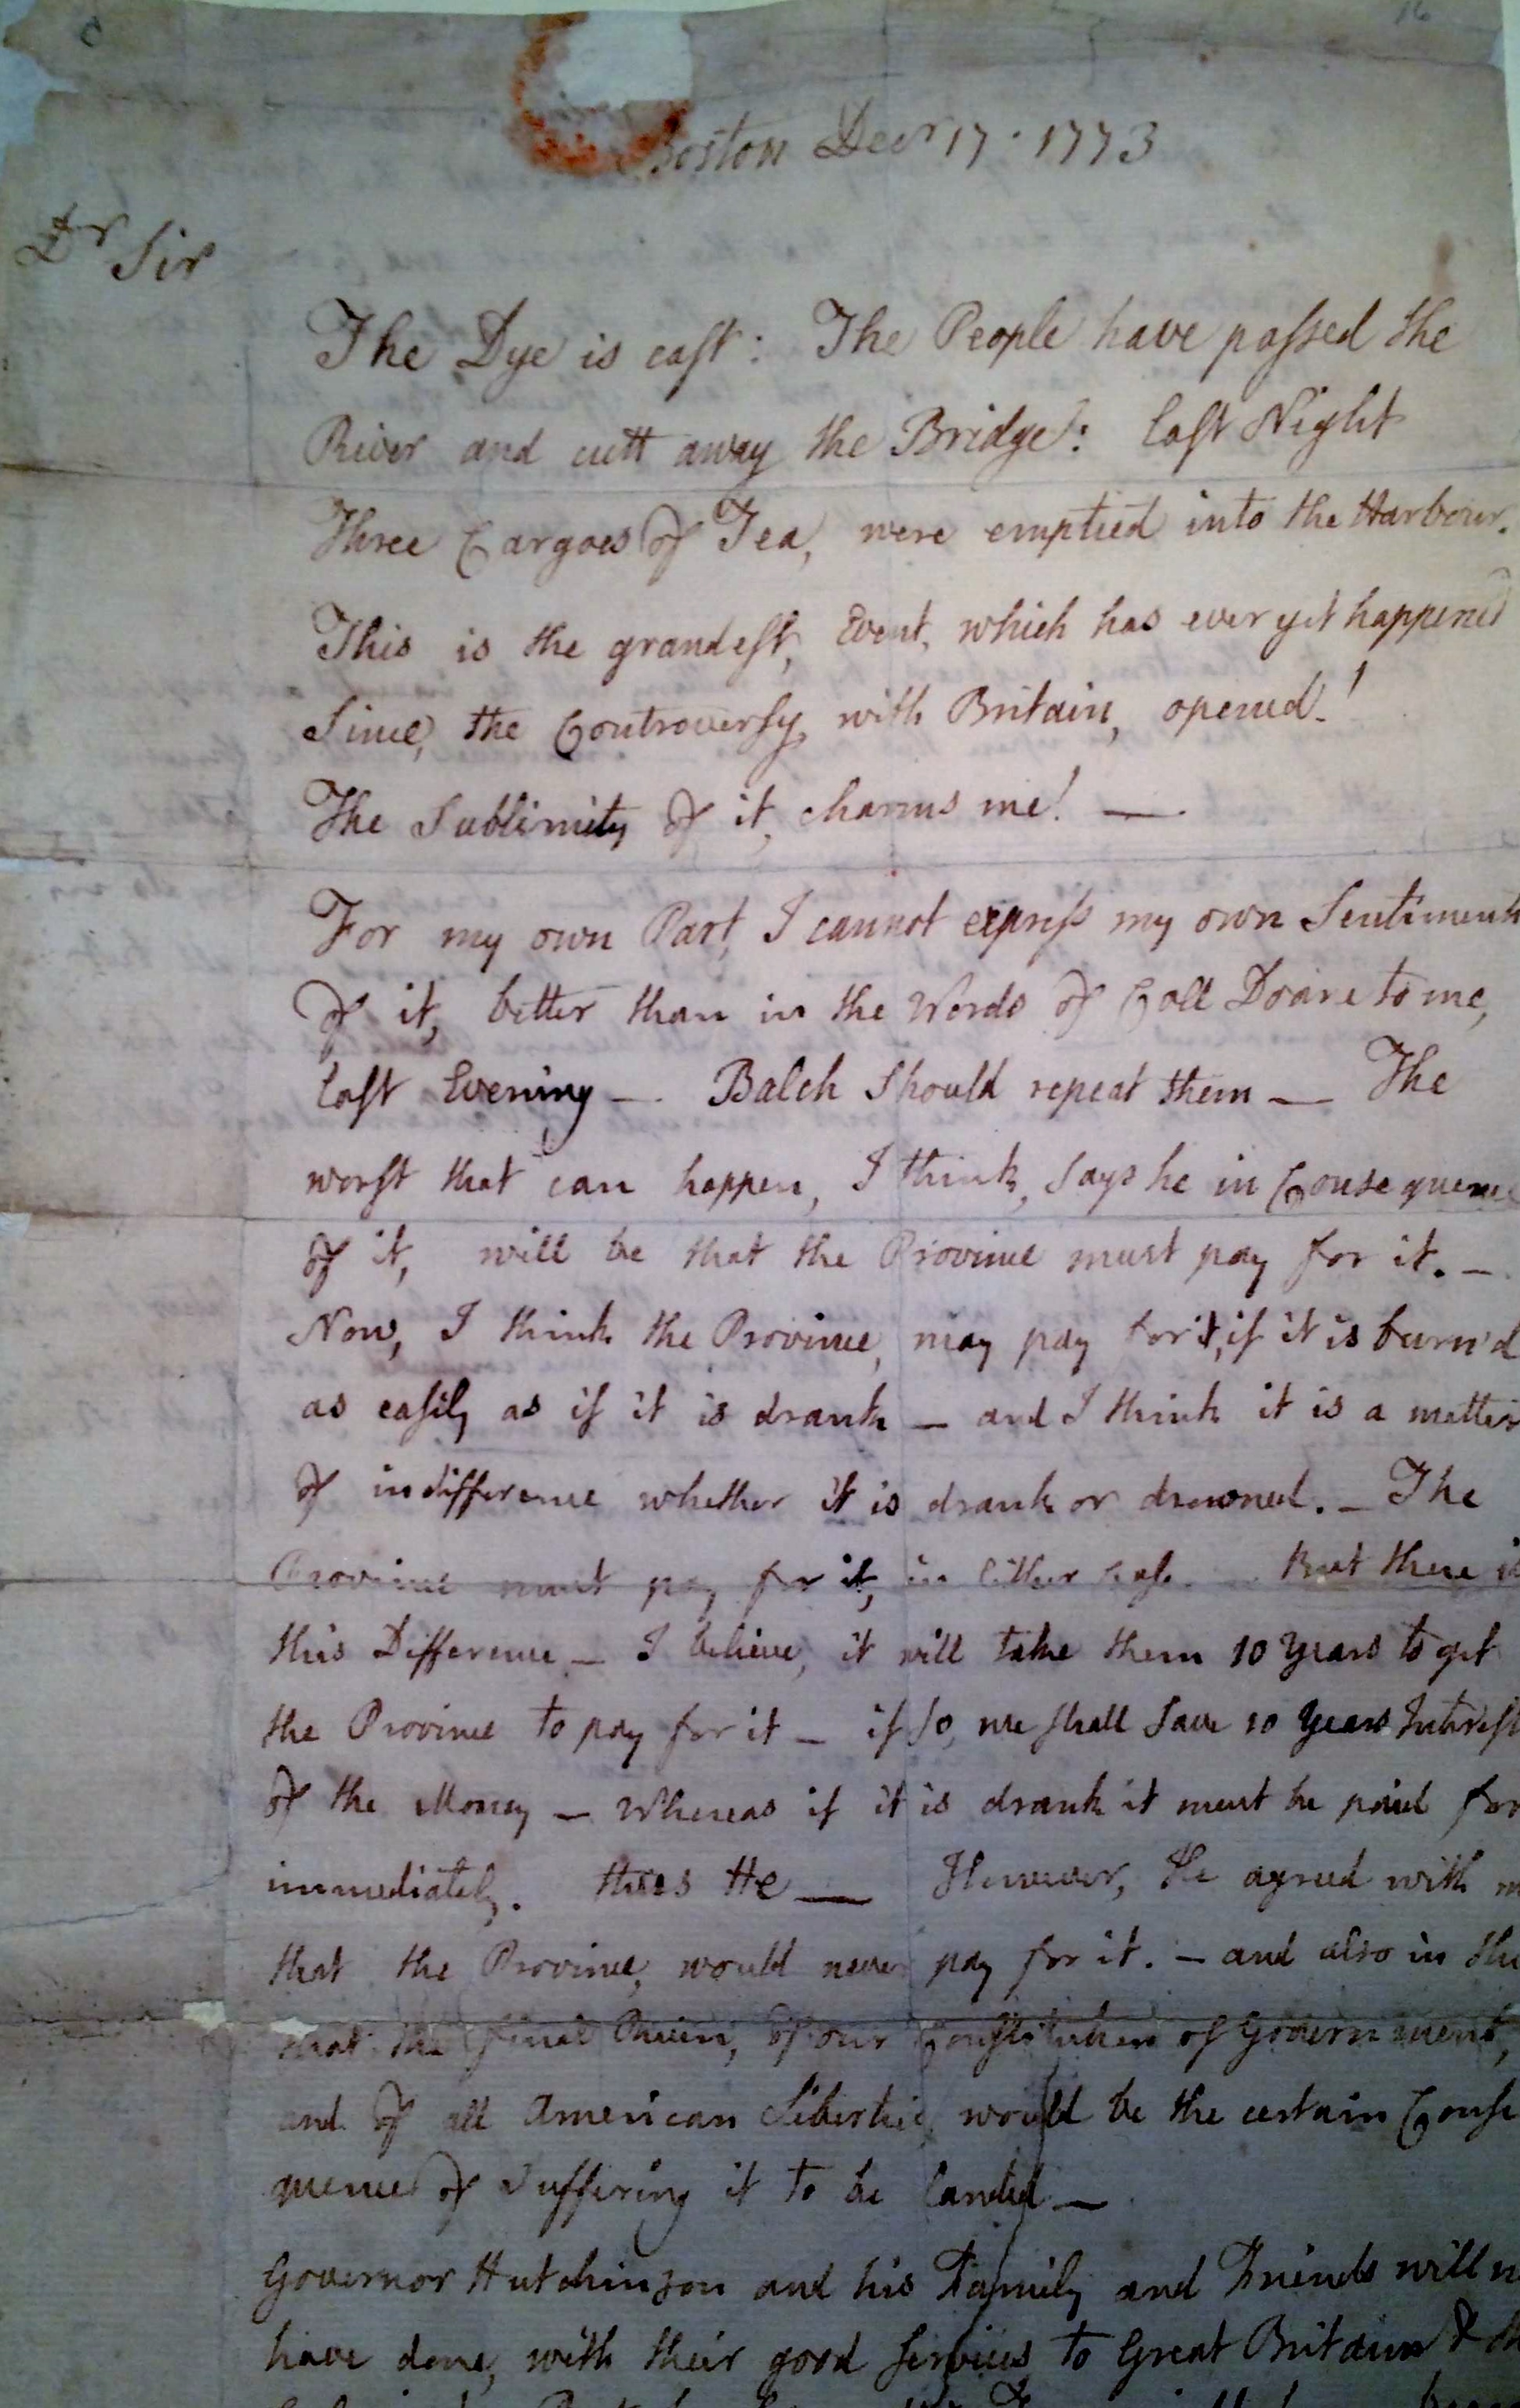 16
Boston Decr 17. 1773
Dr Sir
The Dye is cast: The People have passed the
River and cutt away the Bridge: last Night
Three Cargoes of Tea, were emptied into the Harbour.
This is the grandest, Event, which has ever yet happened
Since, the Controversy, with Britain, opened!
The Sublimity of it, charms me! —
For my own Part, I cannot express my own Sentiments
of it, better than in the Words of Coll Doane to me,
last Evening — Balch Should repeat them — The
worst that can happen, I think, Says he in Consequence
of it, will be that the Province must pay for it. —
Now, I think the Province, may pay for it, if it is burn'd
as easily as if it is drank — and I think it is a matter
of indifference whether it is drank or drowned. — The
Province must pay for it, in Either Case. But there is
this Difference — I believe, it will take them 10 Years to get
the Province to pay for it — if so, we shall Save 10 Years Interest
of the Money — Whereas if it is drank it must be paid for
immediately. thus He — However, He agreed with m
that the Province, would never pay for it. — and also in this
that the final Ruin, of our Constitution of Government,
and of all American Liberties, would be the certain Conse
quence of Suffering it to be landed —
Governor Hutchinson and his Family and Friends will n
have done, with their good services to Great Britain & th